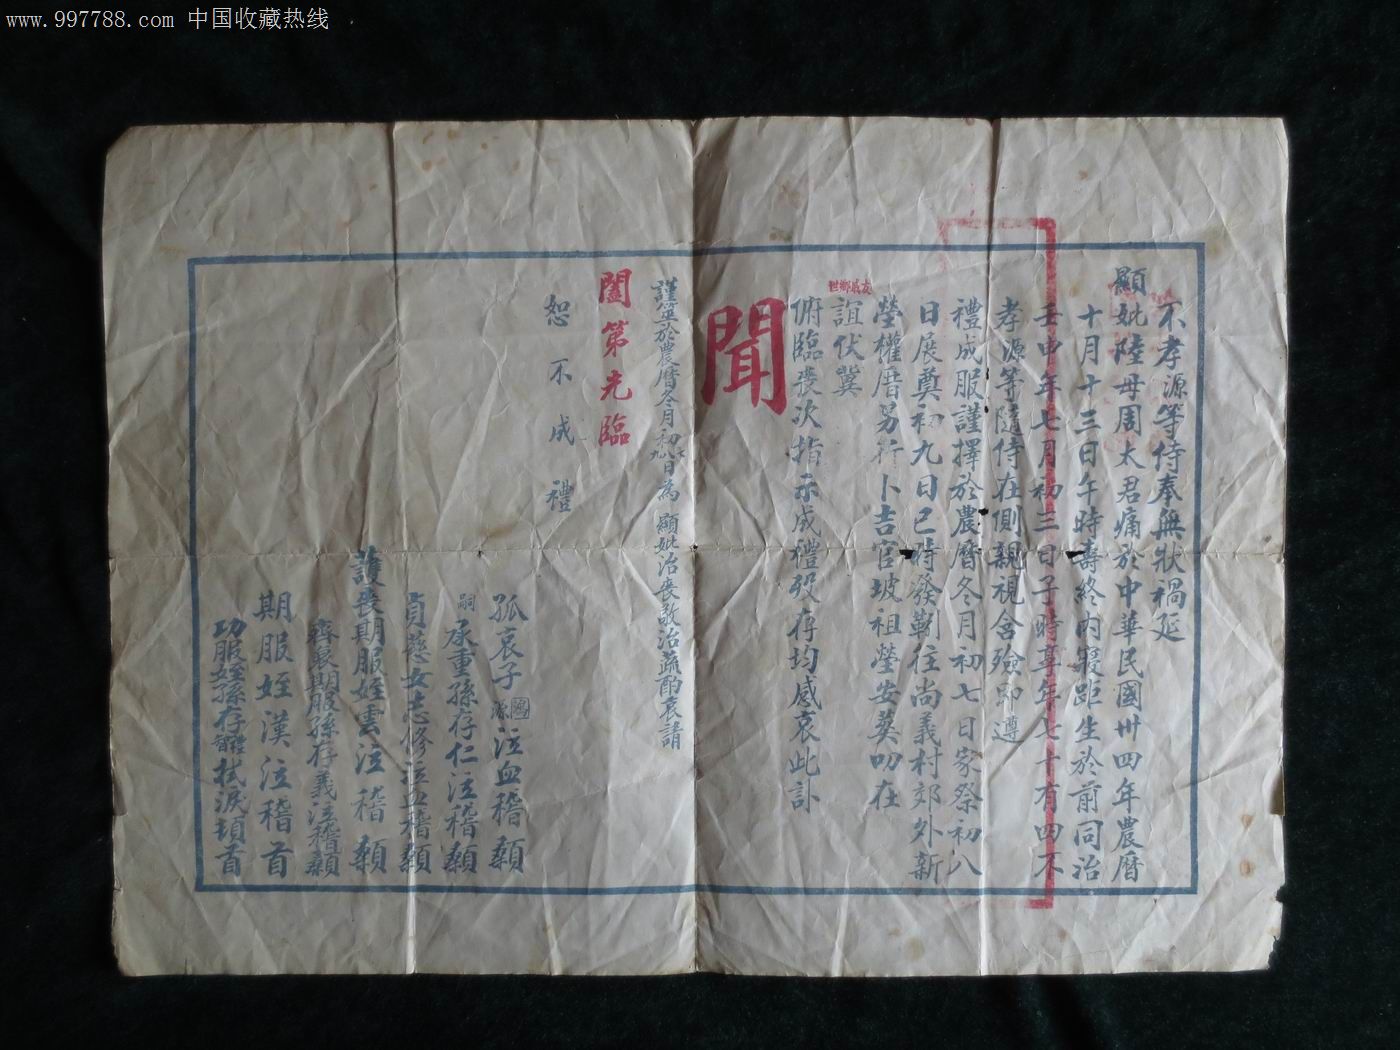 www.997788.com 中国收藏热线
不孝源等侍奉無狀禍延
顯妣陸母周太君痛於中華民國卅四年農曆
十月十三日午時壽終內寢距生於前同治
壬申年七月初三日子時享年七十有四不
孝源等隨侍在側親視含殮即遵
禮成服謹擇於農曆冬月初七日家祭初八
日展奠初九日巳時發靷往尚義村郊外新
塋權厝另行卜吉官坡祖塋安葬叨在
世鄉戚友
誼伏冀
俯臨喪次指示成禮歿存均感哀此訃
聞
謹筮於農曆冬月初七八九日為 顯妣治喪敬治蔬酌哀請
闔第光臨
恕不成禮
孤哀子源泣血稽顙
嗣承重孫存仁泣稽顙
貞慈女志修泣血稽顙
護喪期服姪雲泣稽顙
齊衰期服孫存義泣稽顙
期服姪漢泣稽首
功服姪孫存智禮拭淚頓首